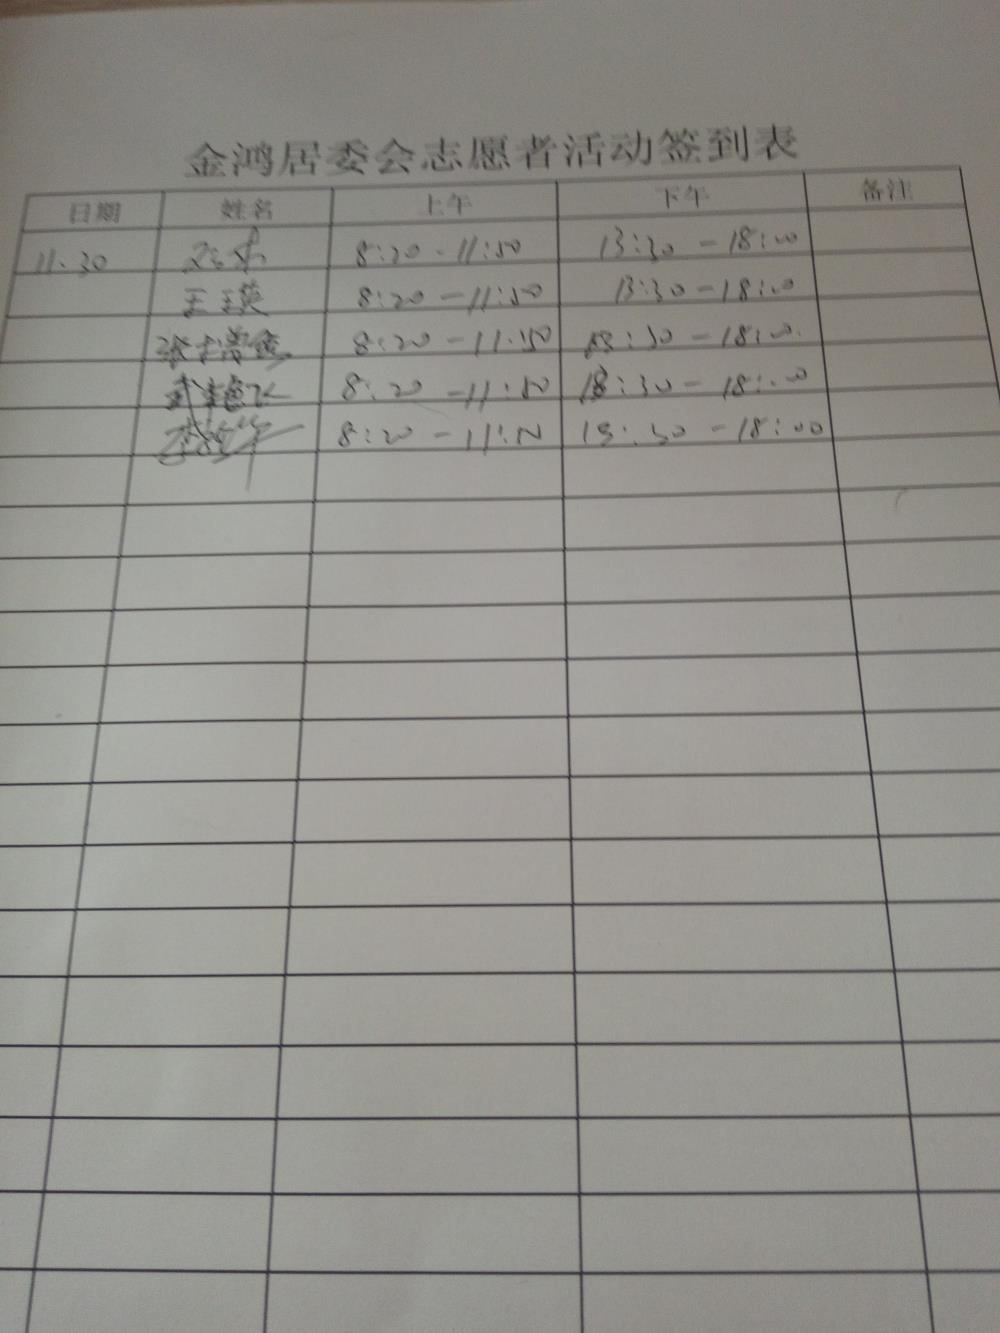 金鸿居委会志愿者活动签到表
日期 姓名 上午 下午 备注
11.30 8:20-11:50 13:30-18:00
王瑛 8:20-11:50 13:30-18:00
张 8:20-11:50 13:30-18:00
武 8:20-11:50 13:30-18:00
李 8:20-11:50 13:30-18:00